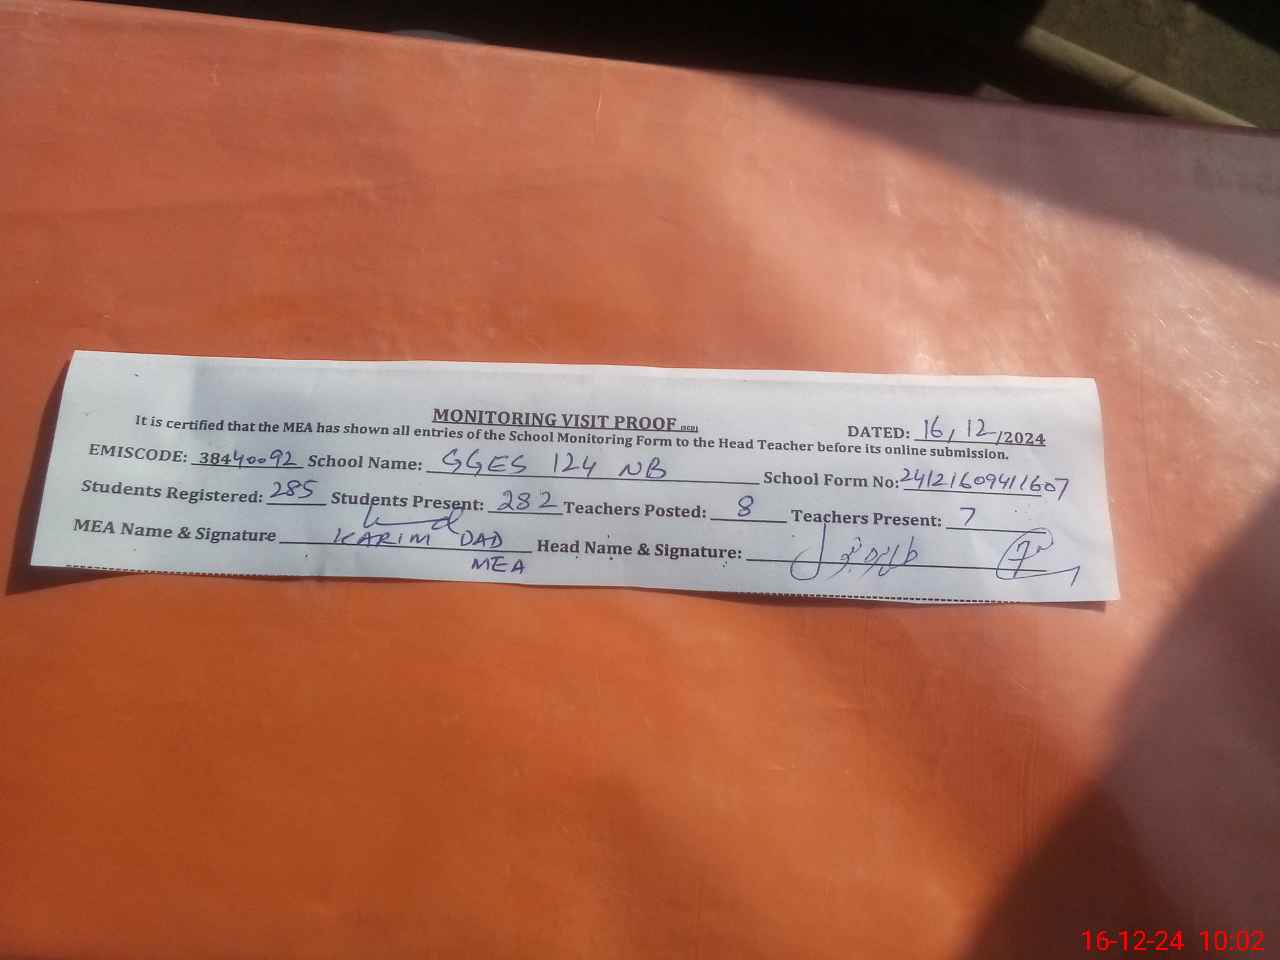 MONITORING VISIT PROOF
DATED: 16/12/2024
It is certified that the MEA has shown all entries of the School Monitoring Form to the Head Teacher before its online submission.
EMISCODE: 38440092 School Name: GGES 124 NB School Form No: 24121609411607
Students Registered: 285 Students Present: 282 Teachers Posted: 8 Teachers Present: 7
MEA Name & Signature KARIM DAD Head Name & Signature:
MEA
16-12-24 10:02